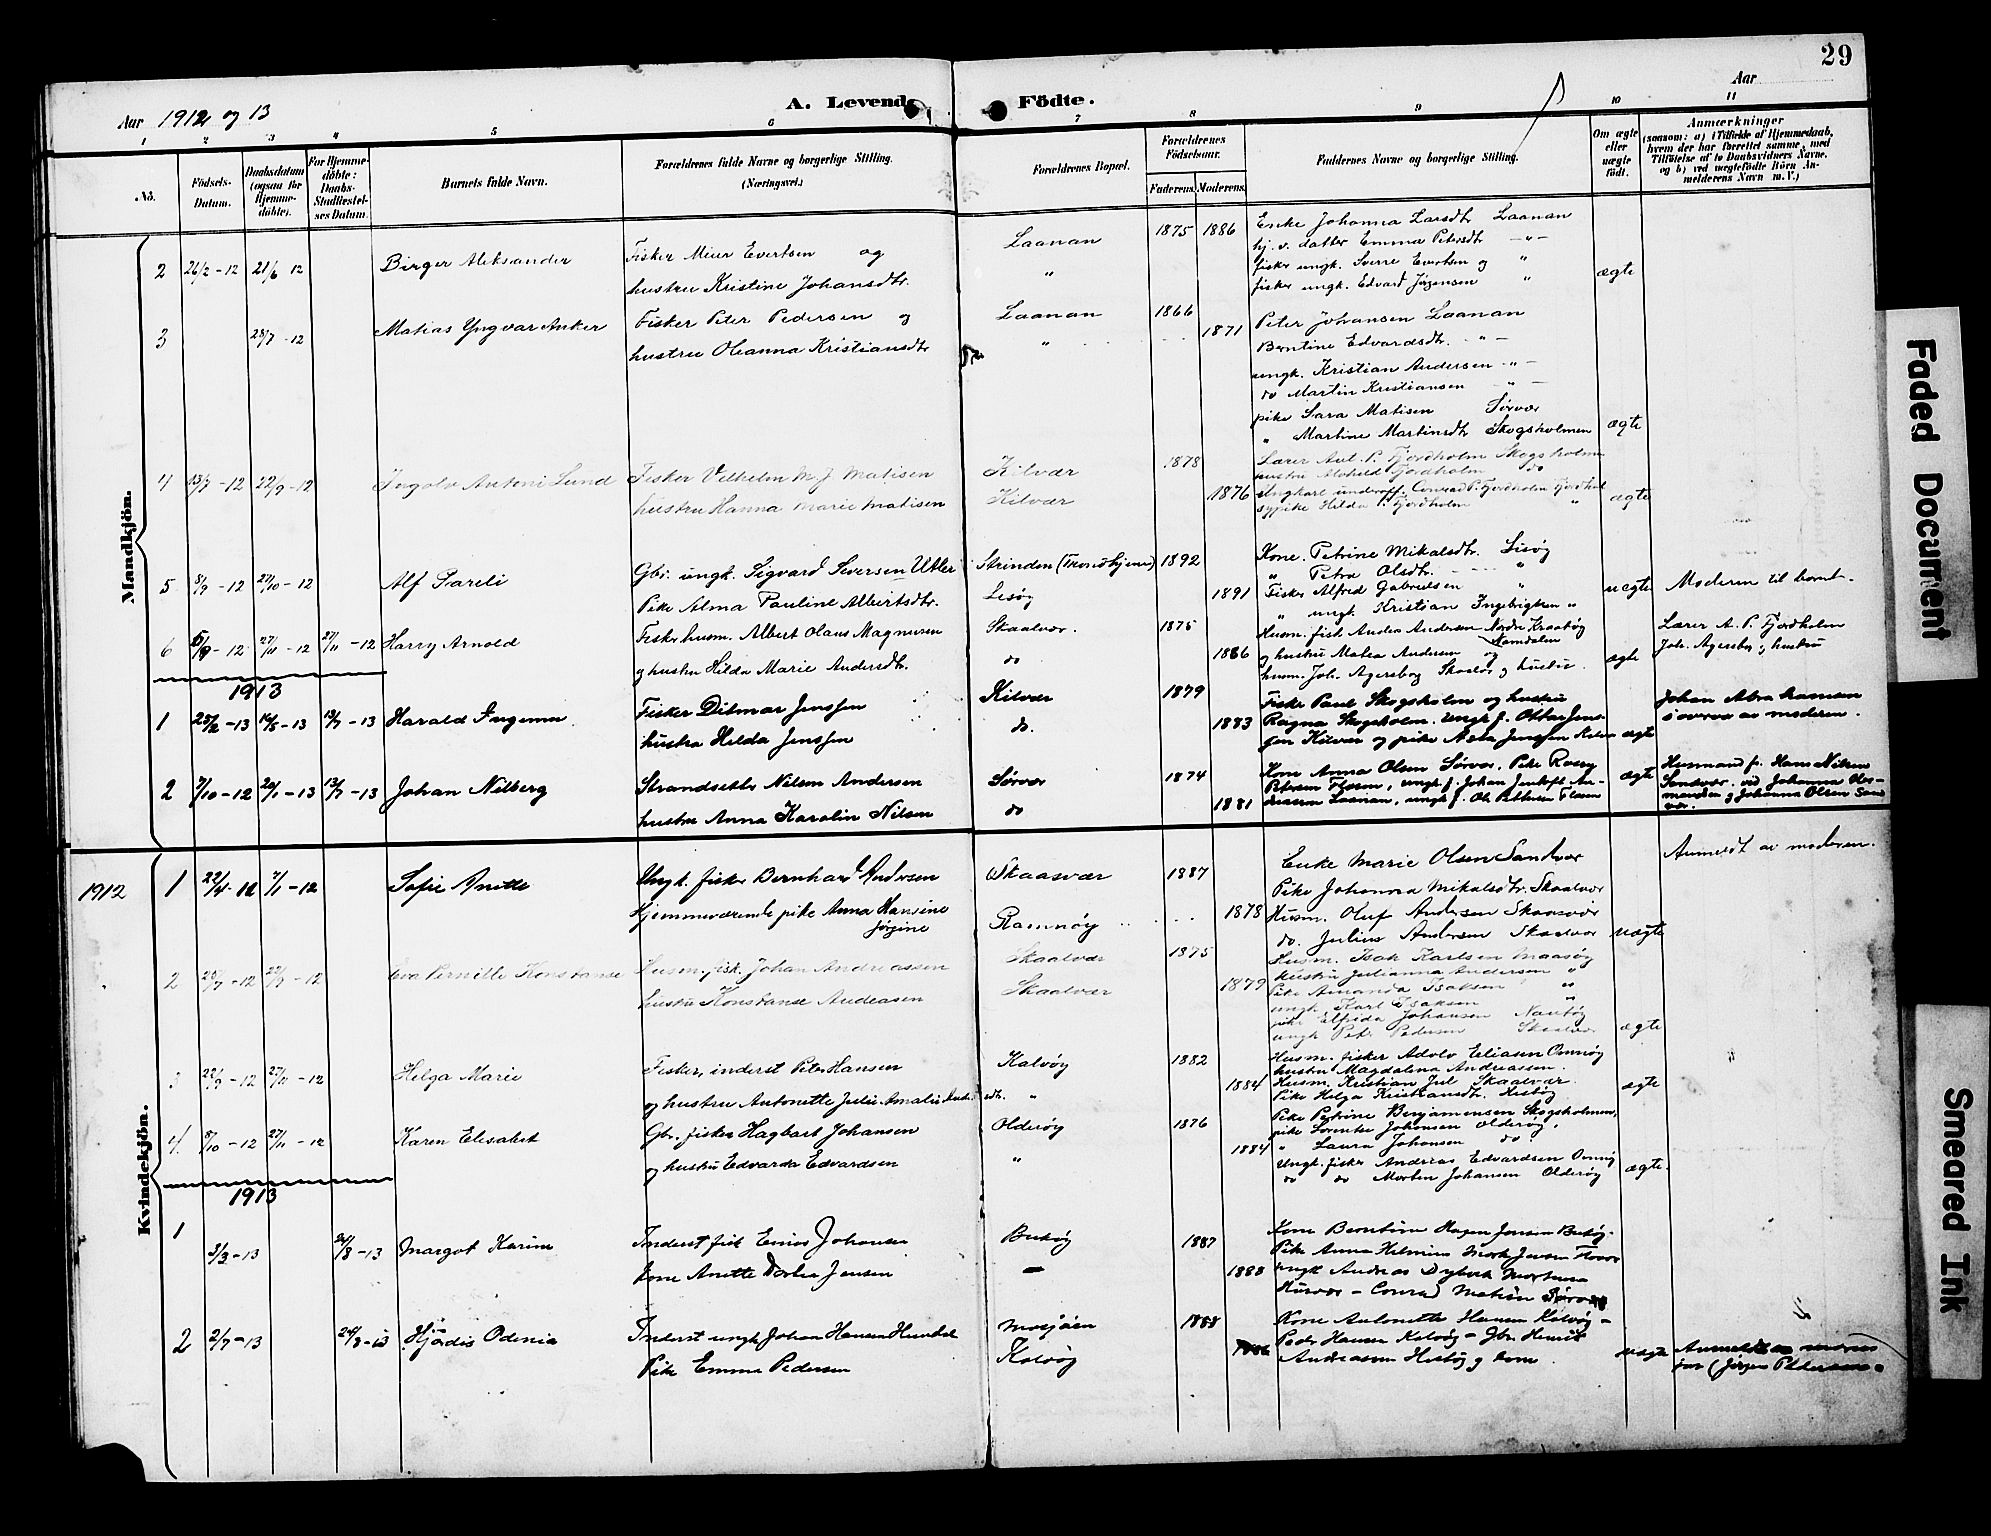 29
Aar 1912 og 13
A. Levende Födte.
Aar
1 2 3 4 5 6 7 8 9 10 11
No.
Födsels-Datum.
Daabsdatum (ogsaa for Hjemmedöbte).
For Hjemmedöbte: Daabs-Stadfæstelses Datum.
Barnets fulde Navn.
Forældrenes fulde Navne og borgerlige Stilling. (Næringsvei.)
Forældrenes Bopæl.
Forældrenes Födselsaar.
Faderens. Moderens.
Faddernes Navne og borgerlige Stilling.
Om ægte eller uægte födt.
Anmærkninger
(saasom: a) i Tilfælde af Hjemmedaab, hvem der har forrettet samme, med Tilföielse af to Daabsvidners Navne, og b) ved uægtefödte Börn Anmelderens Navn m. V.)
Mandkjön.
2 26/2 - 12 21/6 12 Birger Aleksander
Fisker Meier Evertsen og
hustru Kristine Johansdtr.
Laanan
"
1875 1886
Enke Johanna Larsdtr Laanan
hj. v. datter Emma Petersdtr - " -
fisker ungk. Sverre Evertsen og "
fisker ungk. Edvard Jörgensen "
ægte
3 28/7 - 12 Matias Yngvar Anker
Fisker Peter Pedersen og
hustru Oleanna Kristiansdtr
Laanan
"
1866
1871
Peter Johansen Laanan
Berntine Edvardsdtr. - " -
ungk. Kristian Andersen - " -
do Martin Kristiansen - " -
pike Sara Matisen Sørvær
" Martine Martinsdtr Skogsholmen
ægte
4 13/7 - 12 22/9 - 12 Ingolv Antoni Lund
Fisker Vilhelm M. J. Matisen
hustru Hanna Marie Matisen
Kilvær
Kilvær
1878
1876
Lærer Ant. P. Fjordholm Skogsholmen
hustru Alvhild Fjordholm do
Ungkarl underoff. Conrad P. Fjordholm
sypike Hilda P. Fjordholm "
ægte
5 8/9 - 12 27/10 - 12 Alf Pareli
Gbr. ungk. Sigvard Seversen Utler
Pike Alma Pauline Albertsdtr.
Strinden (Trondhjem)
Lisøy
1892
1891
Kone. Petrine Mikalsdtr. Lisøy
" Petra Olsdtr. - - - "
Fisker Alfred Gabrielsen "
" ungk. Kristian Ingebrigtsen "
uægte
Moderen til barnet.
6 5/9 - 12 27/11 - 12 27/11 - 12 Harry Arnold
Fisker husm. Albert Olaus Magnusen
og hustru Hilda Marie Andersdtr.
Skaalvær.
do
1875
1886
Husm. fisk. Andrea Andersen Nordre Kraaköy
og hustru Matea Andersen og Namdalen
husm. Joh. Agersborg Skaalvær og hustru.
ægte
Lærer A. P. Fjordholm
Joh. Agersborg og hustru
1913
1 25/2 - 13 14/5 - 13 13/7 - 13 Harald Ingemar
Fisker Ditmar Jenssen
hustru Hilda Jenssen
Kilvær
do.
1879
1883
Fisker Paul Skogsholm og hustru
Ragna Skogsholm. Ungk. f. Ottar Jenssen
Kilvær og pike Asta Jenssen Kilvær
ægte
Johan Abrahamsen
i overvær av moderen.
2 7/10 - 12 20/1 - 13 13/7 - 13 Johan Nilberg
Strandsitter Nilsen Andersen
hustru Anna Karolin Nilsen
Sørvær
do
1874
1881
Kone Anna Olsen Sørvær, Pike
Petersen Flosen, ungk f. Johan
Andreassen Laanan, ungk f. Ole Pettersen Flosen
ægte
Husmand f. Hans Nilsen
Sandvær. ved Johanna
og Johanna Olsen Sandvær.
Kvindekjön.
1912
1 22/4 - 12 7/1 - 12 Sofie Anette
Ungk. fisker Bernhard Andersen
Hjemmeværende pike Anna Hansine
Jørgine
Skaalvær
Ramnöy
1887
1878
Enke Marie Olsen Sandvær
Pike Johanna Mikalsdtr. Skaalvær
Husm. Oluf Andersen Skaalvær
do. Julius Andersen Skaalvær
uægte
Anmeldt av moderen.
2 20/7 - 12 22/9 - 12 Eva Pernille Konstanse
Husm. fisk. Johan Andreassen
hustru Konstanse Andreasen
Skaalvær
Skaalvær
1875
1879
Husm. Isak Karlsen Maasøy
Hustru Julianna Andersen "
Pike Amanda Isaksen "
ungk. Karl Isaksen "
pike Elfrida Johansen
ungk Petr. Pedersen Skaalvær
ægte
3 22/9 - 12 27/11 - 12 Helga Marie
Fisker, inderst Peter Hansen
og hustru Antonette Julie Amalie
Kalvöy
"
1882
1884
Husm. fisker Adolv Eliasen Omnøy
hustru Magdalena Andreassen.
Husm. Kristian Jul Skaalvær.
Pike Helga Kristiansdtr. Hestøy
ægte
4. 8/10 - 12 27/11 - 12 Karen Elisabet
Gbr. fisker Hagbart Johansen
og hustru Edvarda Edvardsen
Olderøy
"
1876
1884
Pike Petrine Benjaminsen Skogsholmen,
pike Lorentse Johansen Olderøy,
" Laura Johansen do.
Ungk. fisker Andreas Edvardsen Omnøy
do do Morten Johansen Olderøy
ægte.
1913
1 3/3 - 13 24/8 - 13 Margot Karine
Inderst fisk Einar Johansen
Kone Anette Dorlea Jensen
Buøy
—
1887
1888
Kone Berntine Hagen Jensen Buøy.
Pike Anna Helmine Jensen
ungk Andreas Dyback Mortensen
Husvær - Conrad Matisen Sørvær
2 2/7 - 13 24/8 - 13 Hjørdis Odenia
Inderst ungk Johan Hansen
Pike Emma Pedersen
Mosjøen
Kalvöy
1888
Kone Antonette Hansen Kalvöy -
Peder Hansen Kalvöy - Gbr. Henrik
Andreassen Hestøy og kone.
uægte
far (Jörgen Pedersen.
Faded Document
Smeared Ink